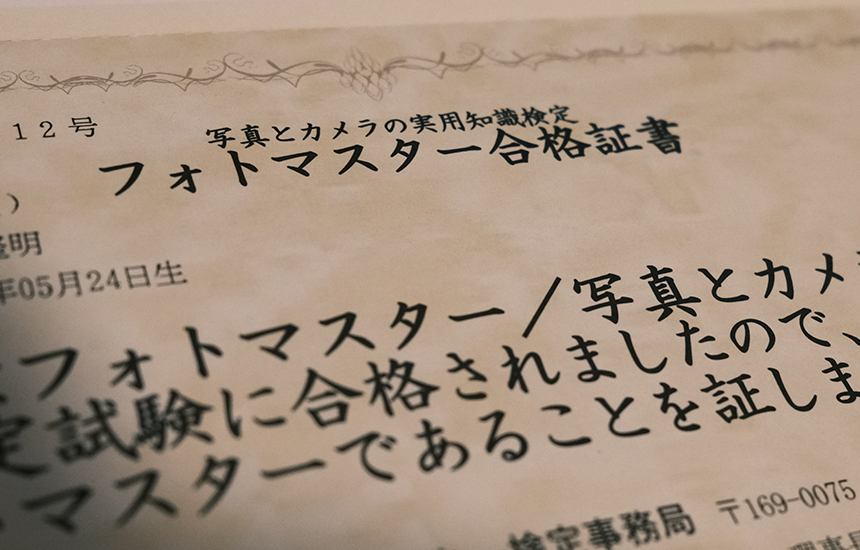 12号
写真とカメラの実用知識検定
フォトマスター合格証書
)
隆明
年05月24日生
フォトマスター／写真とカメ
定試験に合格されましたので、
マスターであることを証しま
検定事務局 〒169-0075
理事長